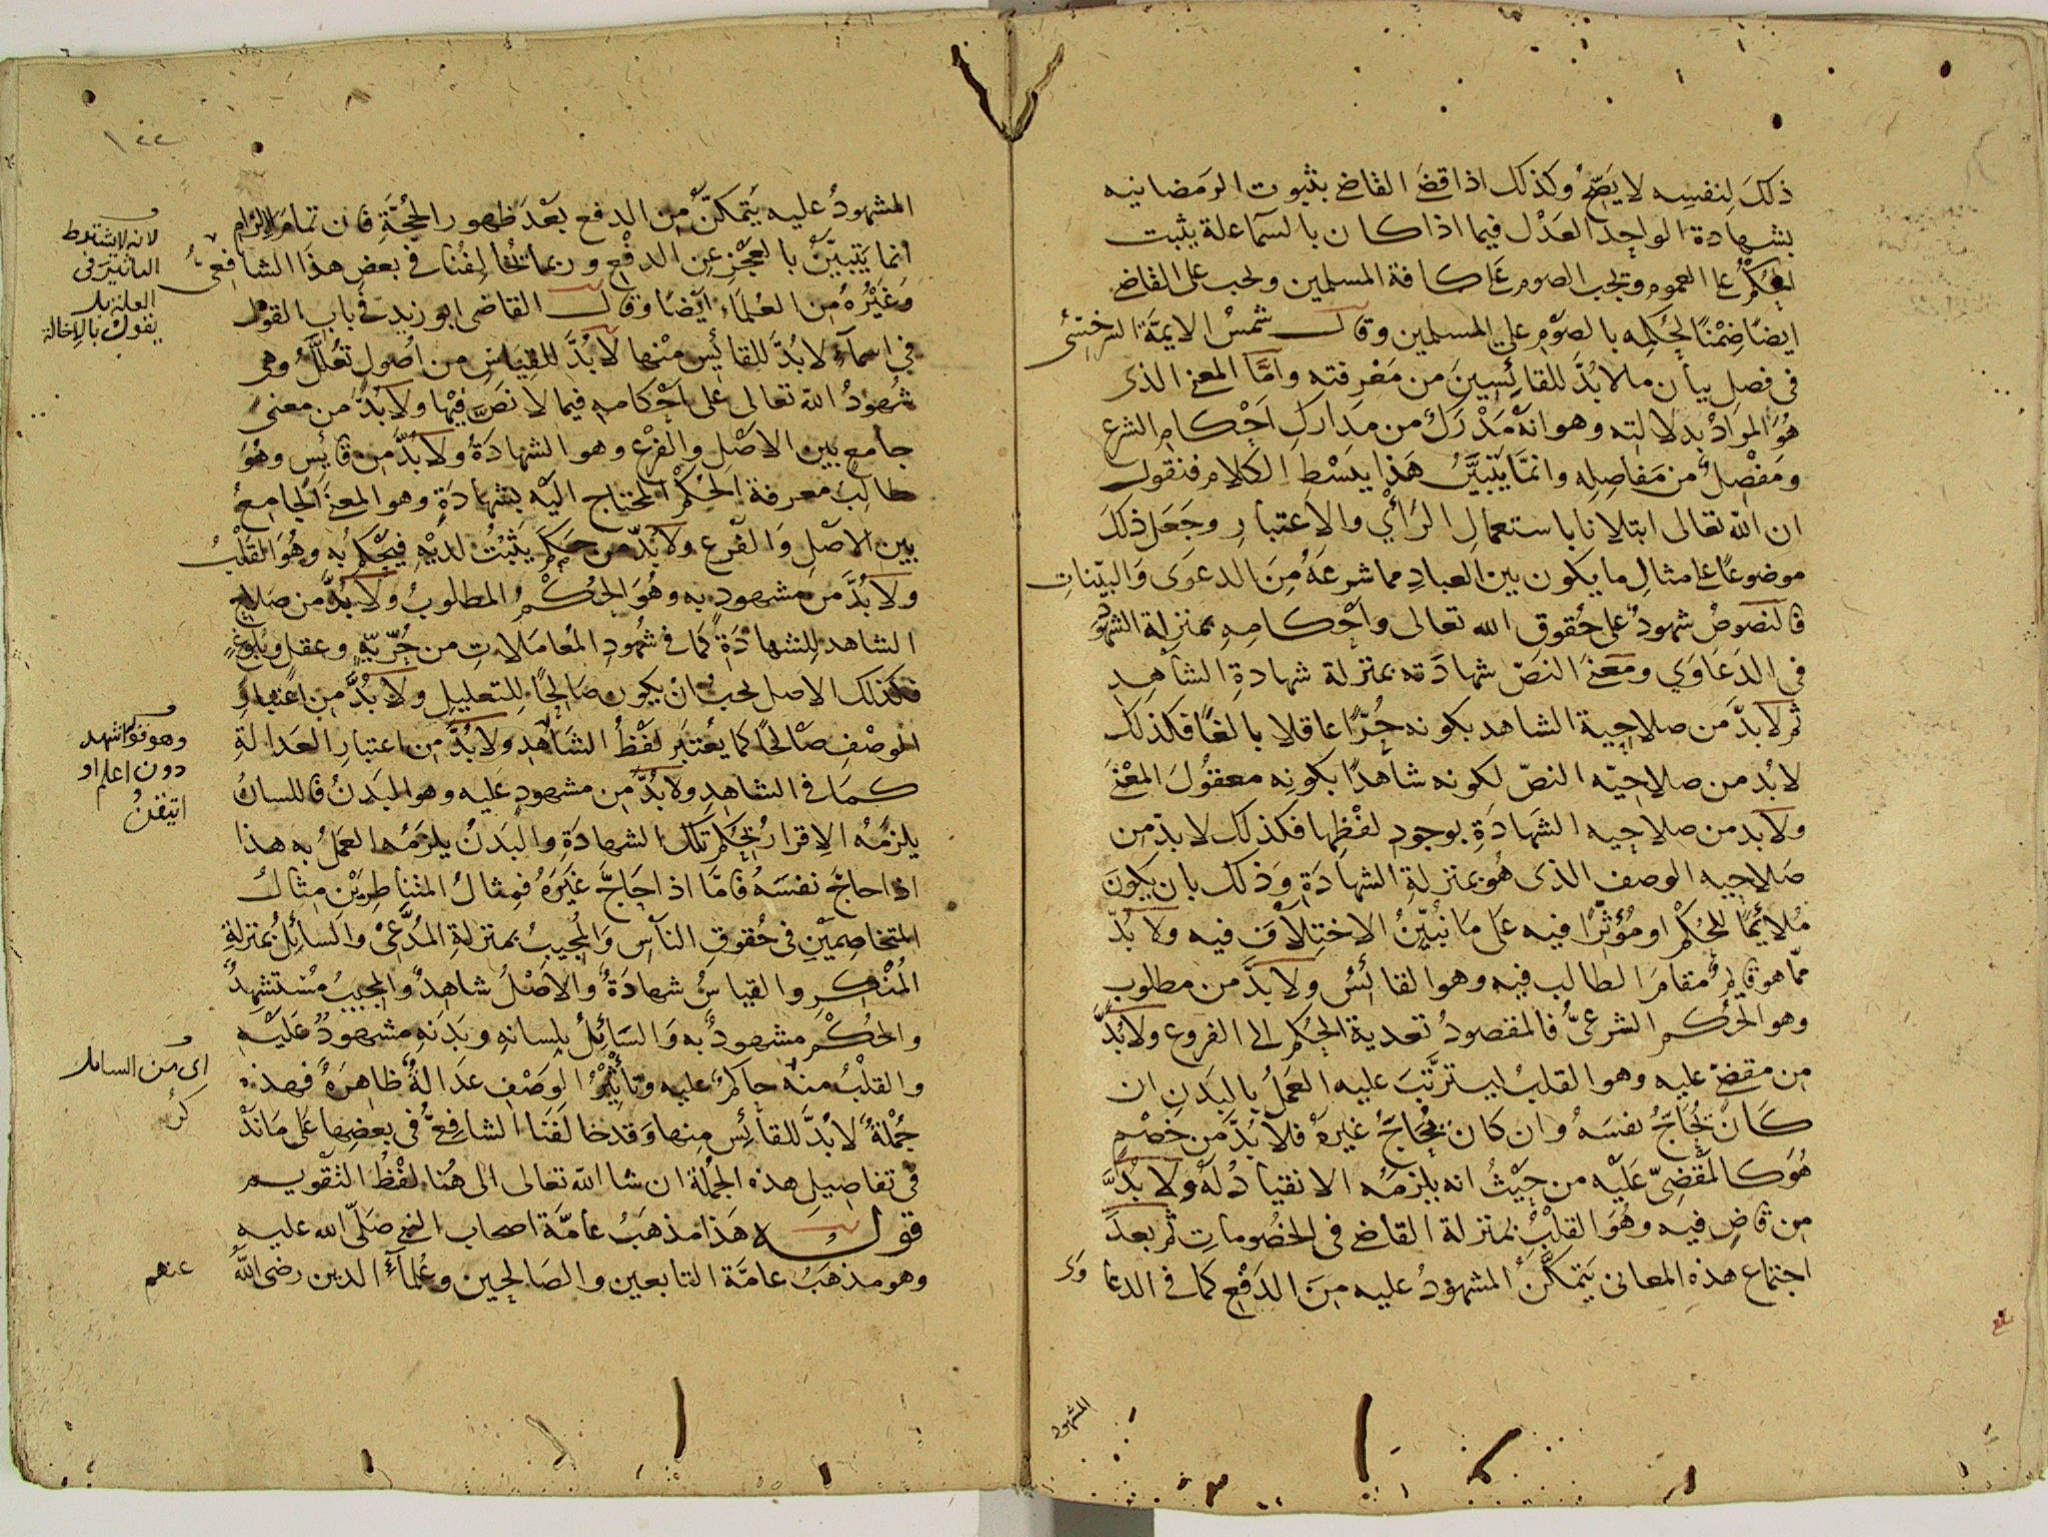 ذلك لنفسه لا يصح وكذلك اذا قضى القاضى بثبوت الرمضانيه
بشهادة الواحد العدل فيما اذا كان بالسماء علة يثبت
الحكم على العموم ويجب الصوم على كافة المسلمين ويجب على القاضى
ايضا ضمنا لحكمه بالصوم على المسلمين وقال شمس الايمة السرخسى
فى فصل بيان ما لا بد للقائسين من معرفته واما المعنى الذى
هو المراد بدلالته وهو انه مدرك من مدارك احكام الشرع
ومفصل من مفاصله وانما يتبين هذا ببسط الكلام فنقول
ان الله تعالى ابتلانا باستعمال الرأي والاعتبار وجعل ذلك
موضوعا على مثال ما يكون بين العباد مما شرعه من الدعوى والبينات
فالنصوص شهود على حقوق الله تعالى واحكامه بمنزلة الشهود
فى الدعاوي ومعنى النص شهادته بمنزلة شهادة الشاهد
ثم لا بد من صلاحية الشاهد بكونه حرا عاقلا بالغا فكذلك
لا بد من صلاحيه النص لكونه شاهدا بكونه معقول المعنى
ولا بد من صلاحيه الشهادة بوجود لفظها فكذلك لا بد من
صلاحيه الوصف الذى هو بمنزلة الشهادة وذلك بان يكون
ملائما للحكم او مؤثرا فيه على ما نبين الاختلاف فيه ولا بد
مما هو قايم مقام الطالب فيه وهو القائس ولا بد من مطلوب
وهو الحكم الشرعى فالمقصود تعدية الحكم الى الفروع ولا بد
من مقضى عليه وهو القلب ليترتب عليه العمل بالبدن ان
كان يحاج نفسه وان كان يحاج غيره فلا بد من خصم
هو كالمقضى عليه من حيث انه يلزمه الانقياد له ولا بد
من قاض فيه وهو القلب بمنزلة القاضى فى الخصومات ثم بعد
اجتماع هذه المعانى يتمكن المشهود عليه من الدفع كما فى الدعاوى
المشهود
بلغ
١٢٢
المشهود عليه يتمكن من الدفع بعد ظهور الحجة فان تمام الالزام
انما يتبين بالعجز عن الدفع وربما يخالفنا فى بعض هذا الشافعى
وغيره من العلماء ايضا وقال القاضى ابو زيد فى باب القول
فى اسماء لا بد للقائس منها لا بد للقياس من اصول تعلل وهى
شهود الله تعالى على احكامه فيما لا نص فيها ولا بد من معنى
جامع بين الاصل والفرع وهو الشهادة ولا بد من قائس وهو
طالب معرفة الحكم المحتاج اليه بشهادة وهو المعنى الجامع
بين الاصل والفرع ولا بد من حكم يثبت لديه فيحكم به وهو القلب
ولا بد من مشهود به وهو الحكم المطلوب ولا بد من صلاح
الشاهد للشهادة كما فى شهود المعاملات من حرية وعقل وبلوغ
فكذلك الاصل يجب ان يكون صالحا للتعليل ولا بد من اعتبار
الوصف صالحا كما يعتبر لفظ الشاهد ولا بد من اعتبار العدالة
كما فى الشاهد ولا بد من مشهود عليه وهو البدن فاللسان
يلزمه الاقرار بحكم تلك الشهادة والبدن يلزمه العمل به هذا
اذا حاج نفسه فاما اذا حاج غيره فمثال المتناظرين مثال
المتخاصمين فى حقوق الناس والمجيب بمنزلة المدعى والسائل بمنزلة
المنكر والقياس شهادة والاصل شاهد والمجيب مستشهد
والحكم مشهود به والسائل بلسانه وبدنه مشهود عليه
والقلب منه حاكم عليه وتأثير الوصف عدالة ظاهرة فهذه
جملة لا بد للقائس منها وقد خالفنا الشافعى فى بعضها على ما نذكر
فى تفاصيل هذه الجملة ان شا الله تعالى الى هنا لفظ التقويم
قوله هذا مذهب عامة اصحاب النبى صلى الله عليه
وهو مذهب عامة التابعين والصالحين وعلماء الدين رضى الله عنهم
لانه لا يشترط
التاثير فى
العلة بل
يقول بالاخالة
وهو قوله اشهد
دون اعلم او
اتيقن
اى من السايل